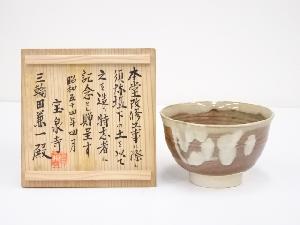 本堂改修工事に際し
須弥壇下の土を以て
之を造り特志者に
記念として贈呈す
昭和五十四年四月
宝泉寺
三輪田萬一殿